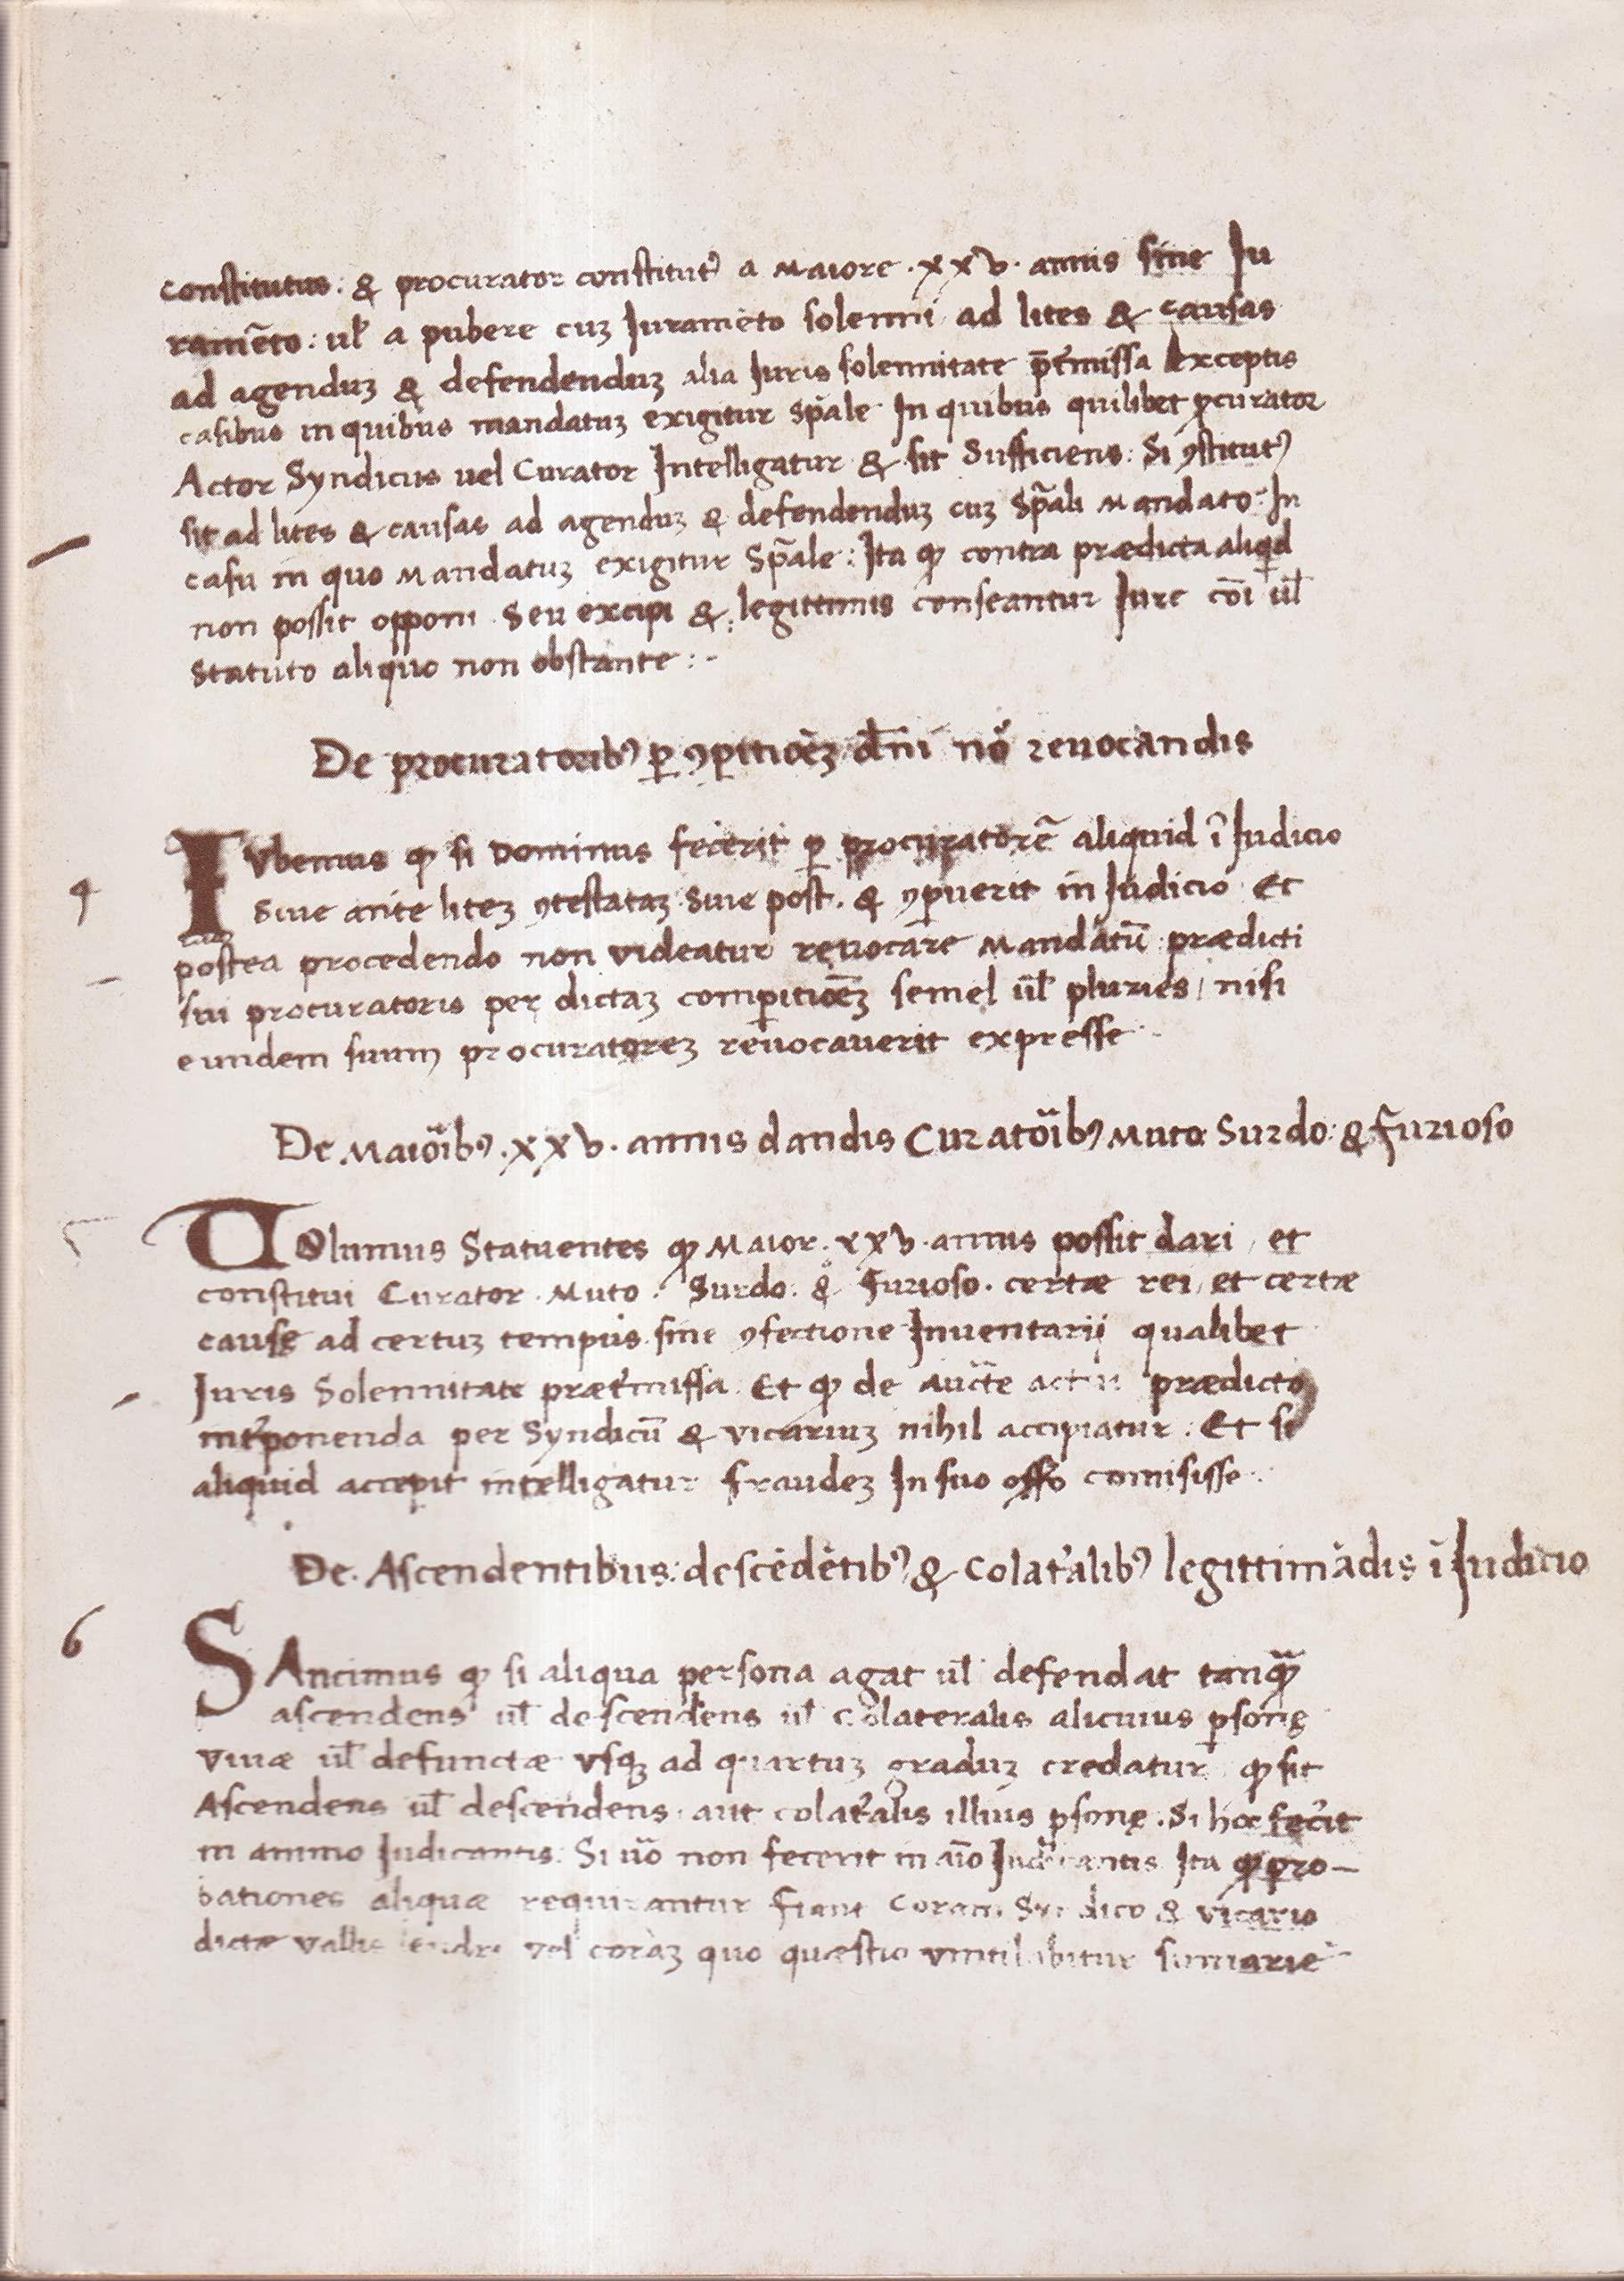 constitutus : & procurator constitutꝰ a Maiore . xxv . annis sine Iu
ramẽto : ul̃ a pubere cuꝫ Iuramẽto solenni ad lites & causas
ad agenduꝫ & defendenduꝫ alia Iuris solennitate p̄t̃missa Exceptis
casibus in quibus mandatuꝫ exigitur Sp̃ale In quibus quilibet ꝓcurator
Actor Syndicus uel Curator Intelligatur & sit Sufficiens : Si ꝯstitutꝰ
sit ad lites & causas ad agenduꝫ & defendenduꝫ cuꝫ Sp̃ali Mandato : In
casu in quo Mandatuꝫ exigitur Sp̃ale : Ita ꝙ contra prædicta aliqd
non possit opponi . Seu excipi & : legittimis conseantur Iure cõi ul̃
Statuto aliquo non obstante : -
De procuratoribꝰ ꝑ ꝯꝑitioẽꝫ dñi nõ reuocandis
4
IVbemus ꝙ si Dominus fecerit ꝑ procuratorẽ aliquid ĩ Iudicio
Siue ante liteꝫ ꝯtestataꝫ Siue post . & ꝯꝑuerit in Iudicio Et
postea procedendo non videatur reuocare Mandatũ prædicti
sui procuratoris per dictaꝫ comꝑitioẽꝫ semel ul̃ pluries / nisi
eundem suum procuratoreꝫ reuocauerit expresse
De Maiõibꝰ . xxv . annis dandis Curatõibꝰ Muto Surdo : & furioso
5
VOlumus Statuentes ꝙ Maior . xxv . annis possit dari , et
constitui Curator . Muto . Surdo : & furioso . certæ rei , et certæ
causę ad certuꝫ tempus . sine ꝯfectione Inuentarij qualibet
Iuris Solennitate præt̃missa . Et ꝙ de auctẽ actui prædicto
int̃ponenda per Syndicũ & vicariuꝫ nihil accipiatur . Et si
aliquid accepit intelligatur fraudeꝫ In suo offõ comisisse .
De . Ascendentibus : descẽdẽtibꝰ & Colat̃alibꝰ legittimãdis ĩ Iudicio
6
SAncimus ꝙ si aliqua persona agat ul̃ defendat tanq̃ꝫ
ascendens ul̃ descendens ul̃ Colateralis alicuius ꝑsonę
viuæ ul̃ defunctæ vsqꝫ ad quartuꝫ graduꝫ credatur ꝙ sit
Ascendens ul̃ descendens . aut colat̃alis illius ꝑsonę . Si hoc fecit
in animo Iudicantis : Si uõ non fecerit in aĩo Iudicantis Ita ꝙ pro-
bationes aliquæ requirantur fiant coram Syndico & vicario
dictæ vallis vel coràꝫ quo quæstio ventilabitur sumarie